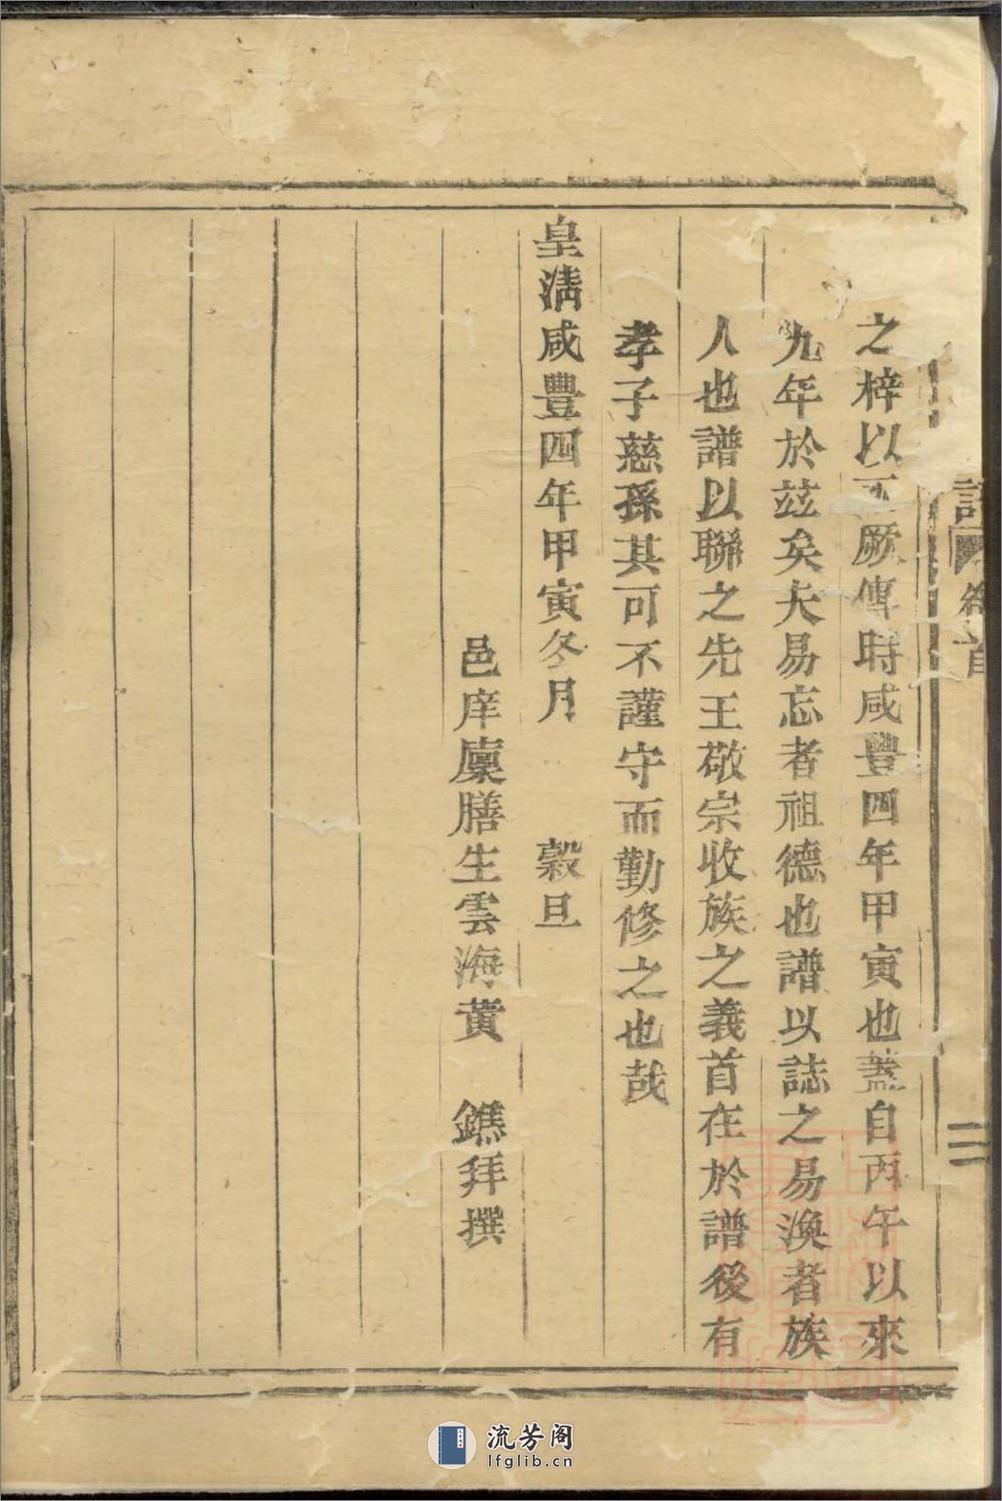 之梓以丕厥傳時咸豐四年甲寅也蓋自丙午以來
九年於茲矣夫易忘者祖德也譜以誌之易渙者族
人也譜以聯之先王敬宗收族之義首在於譜後有
孝子慈孫其可不謹守而勤修之也哉
皇清咸豐四年甲寅冬月 穀旦
邑庠廩膳生雲海黃 鐎拜撰
卷首
二
流芳阁
lfglib.cn